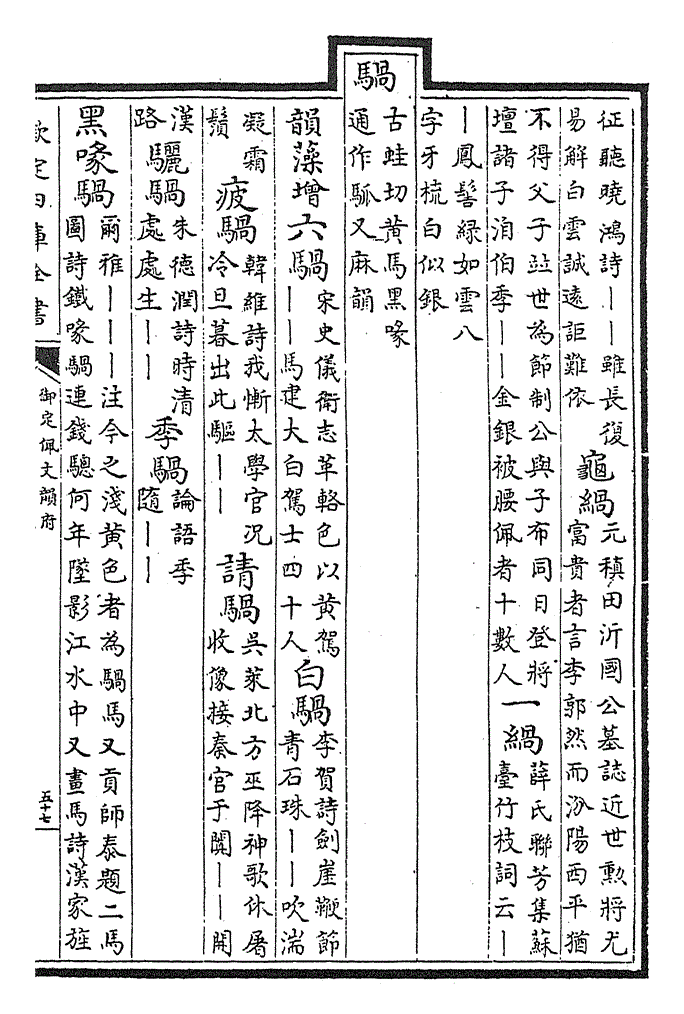 征聽曉鴻詩——雖長復
易解白雲誠遠詎難依
龜緺
元稹田沂國公墓誌近世勲將尤
富貴者言李郭然而汾陽西平猶
不得父子竝世為節制公與子布同日登將
壇諸子洎伯季——金銀被腰佩者十數人
一緺
薛氏聯芳集蘇
臺竹枝詞云—
—鳳髻綠如雲八
字牙梳白似銀
騧
古蛙切黃馬黑喙
通作又麻韻
韻藻增六騧
宋史儀衛志革輅色以黃駕
——馬建大白駕士四十人
白騧
李賀詩劍崖鞭節
青石珠——吹湍
凝霜
鬚
疲騧
韓維詩我慚太學官况
冷旦暮出此驅——
請騧
吳萊北方巫降神歌休屠
收像接秦官于闐——開
漢
路
驪騧
朱德潤詩時清
處處生——
季騧
論語季
隨——
黑喙騧
爾雅———注今之淺黃色者為騧馬又貢師泰題二馬
圖詩鐵喙騧連錢驄何年墜影江水中又畫馬詩漢家旌
欽定四庫全書
御定佩文韻府
五十七